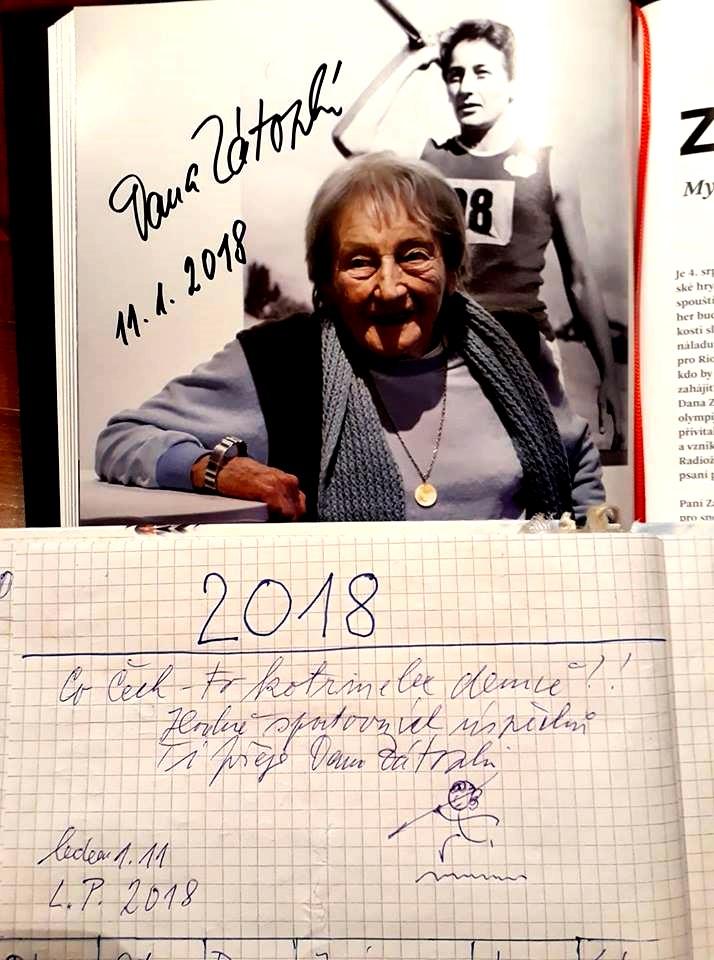 Dana Zátopk
11. 1. 2018
98
Z
My
Je 4. srp
ské hry
spoušti
her bud
kosti sl
náladu
pro Rio
kdo by
zahájit
Dana Z
olympi
přivíta
a vznik
Radiož
psaní p
Paní Za
pro spo
2018
Co Čech - to kotrmelec denně?!
Hodně sportovních úspěchů
Ti přeje Dana Zátopk
leden 1. 11
L. P. 2018